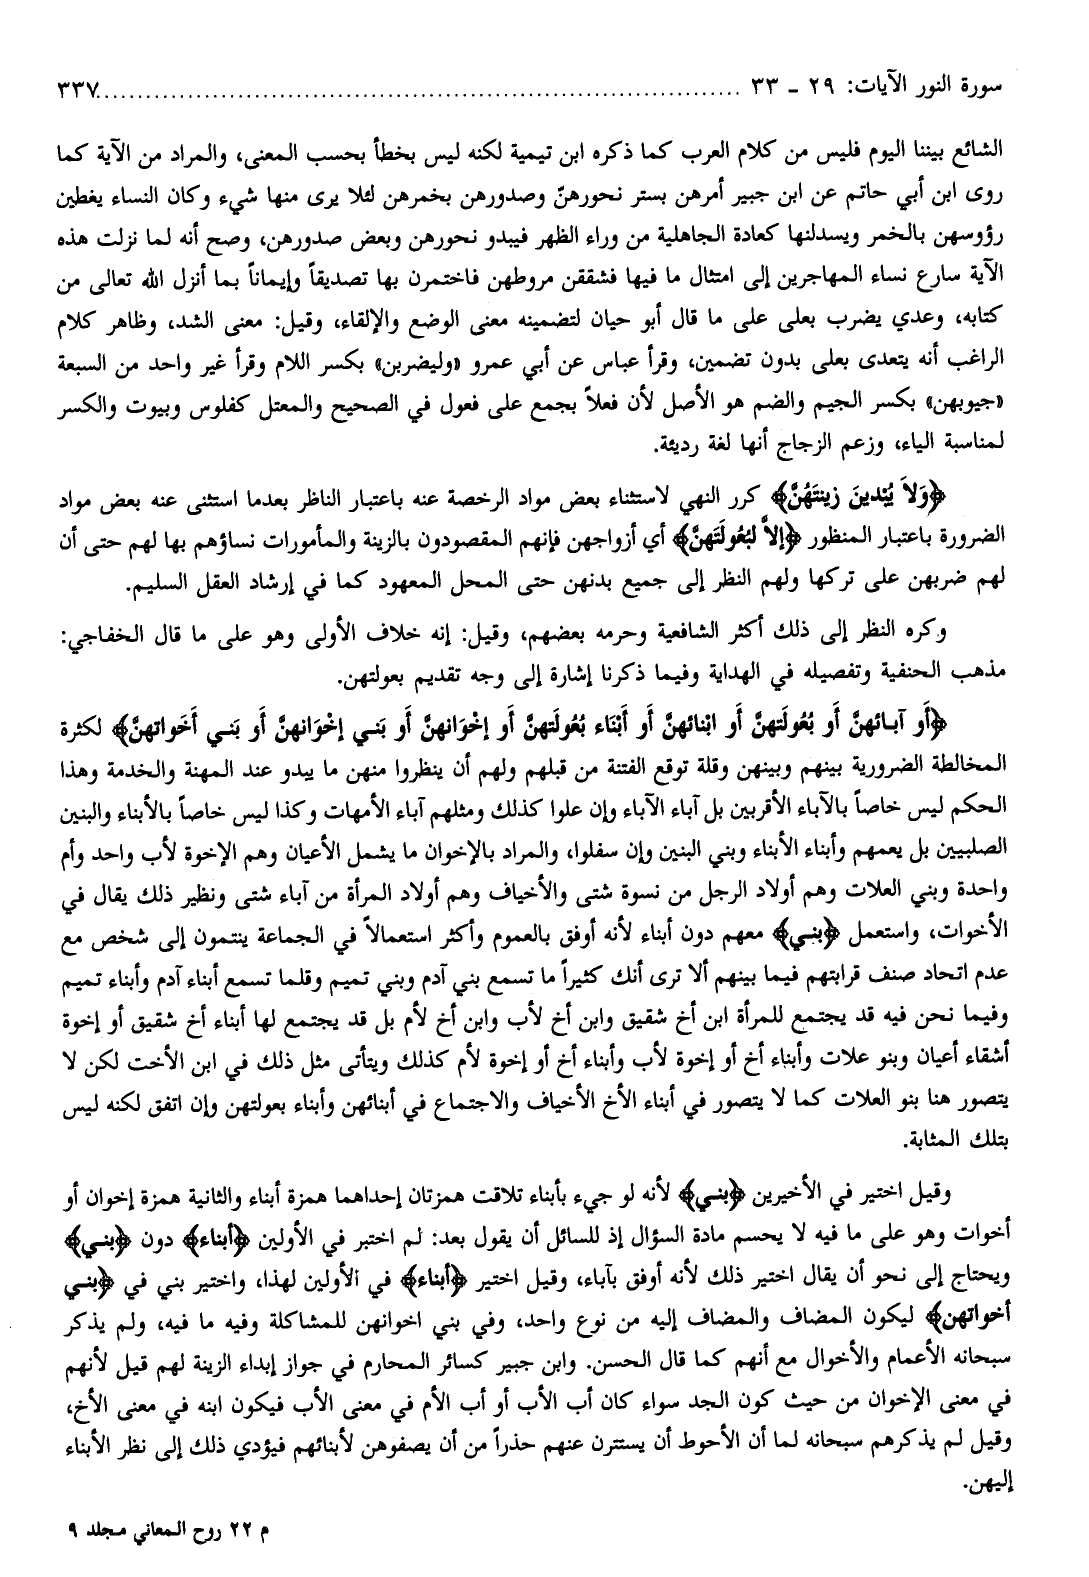 سورة النور الآيات: ٢٩ - ٣٣ ........................................................................ ٣٣٧
الشائع بيننا اليوم فليس من كلام العرب كما ذكره ابن تيمية لكنه ليس بخطأ بحسب المعنى، والمراد من الآية كما
روى ابن أبي حاتم عن ابن جبير أمرهن بستر نحورهنّ وصدورهن بخمرهن لئلا يرى منها شيء وكان النساء يغطين
رؤوسهن بالخمر ويسدلنها كعادة الجاهلية من وراء الظهر فيبدو نحورهن وبعض صدورهن، وصح أنه لما نزلت هذه
الآية سارع نساء المهاجرين إلى امتثال ما فيها فشققن مروطهن فاختمرن بها تصديقاً وإيماناً بما أنزل الله تعالى من
كتابه، وعدي يضرب بعلى على ما قال أبو حيان لتضمينه معنى الوضع والإلقاء، وقيل: معنى الشد، وظاهر كلام
الراغب أنه يتعدى بعلى بدون تضمين، وقرأ عباس عن أبي عمرو «وليضربن» بكسر اللام وقرأ غير واحد من السبعة
«جيوبهن» بكسر الجيم والضم هو الأصل لأن فعلاً يجمع على فعول في الصحيح والمعتل كفلوس وبيوت والكسر
لمناسبة الياء، وزعم الزجاج أنها لغة رديئة.
﴿وَلاَ يُبْدينَ زينتَهُنَّ﴾ كرر النهي لاستثناء بعض مواد الرخصة عنه باعتبار الناظر بعدما استثنى عنه بعض مواد
الضرورة باعتبار المنظور ﴿إلاَّ لبُعُولَتهنَّ﴾ أي أزواجهن فإنهم المقصودون بالزينة والمأمورات نساؤهم بها لهم حتى أن
لهم ضربهن على تركها ولهم النظر إلى جميع بدنهن حتى المحل المعهود كما في إرشاد العقل السليم.
وكره النظر إلى ذلك أكثر الشافعية وحرمه بعضهم، وقيل: إنه خلاف الأولى وهو على ما قال الخفاجي:
مذهب الحنفية وتفصيله في الهداية وفيما ذكرنا إشارة إلى وجه تقديم بعولتهن.
﴿أَو آبـائهنَّ أَو بُعُولَتهنَّ أَو ابْنائهنَّ أَو أَبْنَاء بُعُولَتهنَّ أَو إخْوَانهنَّ أَو بَنـي إخْوَانهنَّ أَو بَنـي أَخَواتهنَّ﴾ لكثرة
المخالطة الضرورية بينهم وبينهن وقلة توقع الفتنة من قبلهم ولهم أن ينظروا منهن ما يبدو عند المهنة والخدمة وهذا
الحكم ليس خاصاً بالآباء الأقربين بل آباء الآباء وإن علوا كذلك ومثلهم آباء الأمهات وكذا ليس خاصاً بالأبناء والبنين
الصلبيين بل يعمهم وأبناء الأبناء وبني البنين وإن سفلوا، والمراد بالإخوان ما يشمل الأعيان وهم الإخوة لأب واحد وأم
واحدة وبني العلات وهم أولاد الرجل من نسوة شتى والأخياف وهم أولاد المرأة من آباء شتى ونظير ذلك يقال في
الأخوات، واستعمل ﴿بنـي﴾ معهم دون أبناء لأنه أوفق بالعموم وأكثر استعمالاً في الجماعة ينتمون إلى شخص مع
عدم اتحاد صنف قرابتهم فيما بينهم ألا ترى أنك كثيراً ما تسمع بني آدم وبني تميم وقلما تسمع أبناء آدم وأبناء تميم
وفيما نحن فيه قد يجتمع للمرأة ابن أخ شقيق وابن أخ لأب وابن أخ لأم بل قد يجتمع لها أبناء أخ شقيق أو إخوة
أشقاء أعيان وبنو علات وأبناء أخ أو إخوة لأب وأبناء أخ أو إخوة لأم كذلك ويتأتى مثل ذلك في ابن الأخت لكن لا
يتصور هنا بنو العلات كما لا يتصور في أبناء الأخ الأخياف والاجتماع في أبنائهن وأبناء بعولتهن وإن اتفق لكنه ليس
بتلك المثابة.
وقيل اختير في الأخيرين ﴿بنـي﴾ لأنه لو جيء بأبناء تلاقت همزتان إحداهما همزة أبناء والثانية همزة إخوان أو
أخوات وهو على ما فيه لا يحسم مادة السؤال إذ للسائل أن يقول بعد: لم اختبر في الأولين ﴿أبناء﴾ دون ﴿بنـي﴾
ويحتاج إلى نحو أن يقال اختير ذلك لأنه أوفق بآباء، وقيل اختير ﴿أبناء﴾ في الأولين لهذا، واختير بني في ﴿بنـي
أخواتهن﴾ ليكون المضاف والمضاف إليه من نوع واحد، وفي بني اخوانهن للمشاكلة وفيه ما فيه، ولم يذكر
سبحانه الأعمام والأخوال مع أنهم كما قال الحسن. وابن جبير كسائر المحارم في جواز إبداء الزينة لهم قيل لأنهم
في معنى الإخوان من حيث كون الجد سواء كان أب الأب أو أب الأم في معنى الأب فيكون ابنه في معنى الأخ،
وقيل لم يذكرهم سبحانه لما أن الأحوط أن يستترن عنهم حذراً من أن يصفوهن لأبنائهم فيؤدي ذلك إلى نظر الأبناء
إليهن.
م ٢٢ روح المعاني مجلد ٩